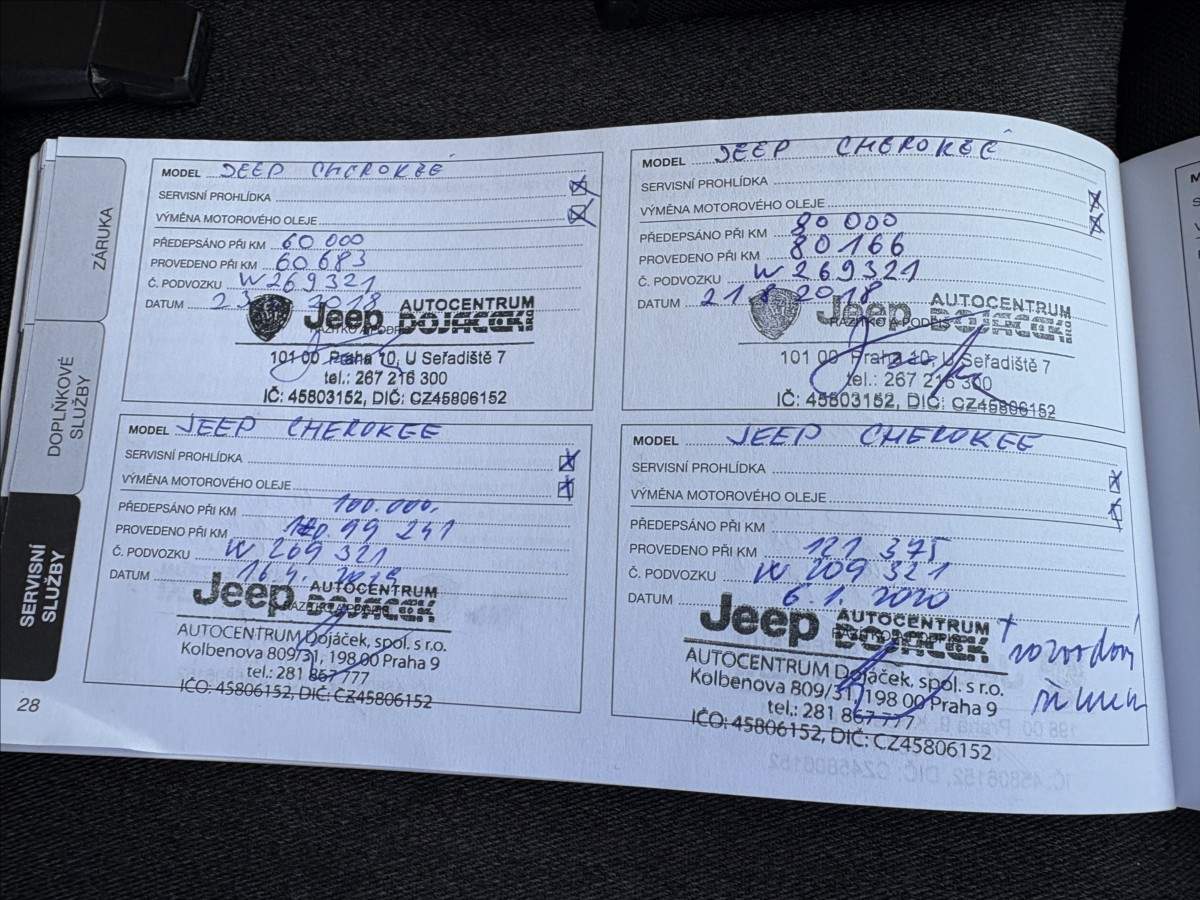 ZÁRUKA
DOPLŇKOVÉ
SLUŽBY
SERVISNÍ
SLUŽBY
28
MODEL JEEP CHEROKEE
SERVISNÍ PROHLÍDKA
VÝMĚNA MOTOROVÉHO OLEJE
PŘEDEPSÁNO PŘI KM 60 000
PROVEDENO PŘI KM 60 683
Č. PODVOZKU W 269321
DATUM 2018
Jeep AUTOCENTRUM
DOJÁČEK
101 00 Praha 10, U Seřadiště 7
tel.: 267 216 300
IČ: 45803152, DIČ: CZ45806152
MODEL JEEP CHEROKEE
SERVISNÍ PROHLÍDKA
VÝMĚNA MOTOROVÉHO OLEJE
PŘEDEPSÁNO PŘI KM 80 000
PROVEDENO PŘI KM 80166
Č. PODVOZKU W 269321
DATUM 21 8 2018
RAZÍTKO A PODPIS
Jeep AUTOCENTRUM
DOJÁČEK
101 00 Praha 10, U Seřadiště 7
tel.: 267 216 300
IČ: 45803152, DIČ: CZ45806152
MODEL JEEP CHEROKEE
SERVISNÍ PROHLÍDKA
VÝMĚNA MOTOROVÉHO OLEJE
PŘEDEPSÁNO PŘI KM 100.000,
PROVEDENO PŘI KM 99 241
Č. PODVOZKU W 269 321
DATUM 16 4. 2019
Jeep AUTOCENTRUM
DOJÁČEK
AUTOCENTRUM Dojáček, spol. s r.o.
Kolbenova 809/31, 198 00 Praha 9
tel.: 281 867 777
IČO: 45806152, DIČ: CZ45806152
MODEL JEEP CHEROKEE
SERVISNÍ PROHLÍDKA
VÝMĚNA MOTOROVÉHO OLEJE
PŘEDEPSÁNO PŘI KM
PROVEDENO PŘI KM 121 375
Č. PODVOZKU W 269 321
DATUM 6. 1. 2020
Jeep AUTOCENTRUM
DOJÁČEK
AUTOCENTRUM Dojáček, spol. s r.o.
Kolbenova 809/31, 198 00 Praha 9
tel.: 281 867 777
IČO: 45806152, DIČ: CZ45806152
+
rozvodový
řemen